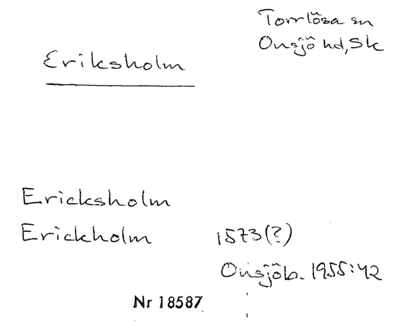 Torrlösa sn
Onsjö hd, Sk
Eriksholm
Ericksholm
Erickholm 1573(?)
Onsjöb. 1955:42
Nr 18587